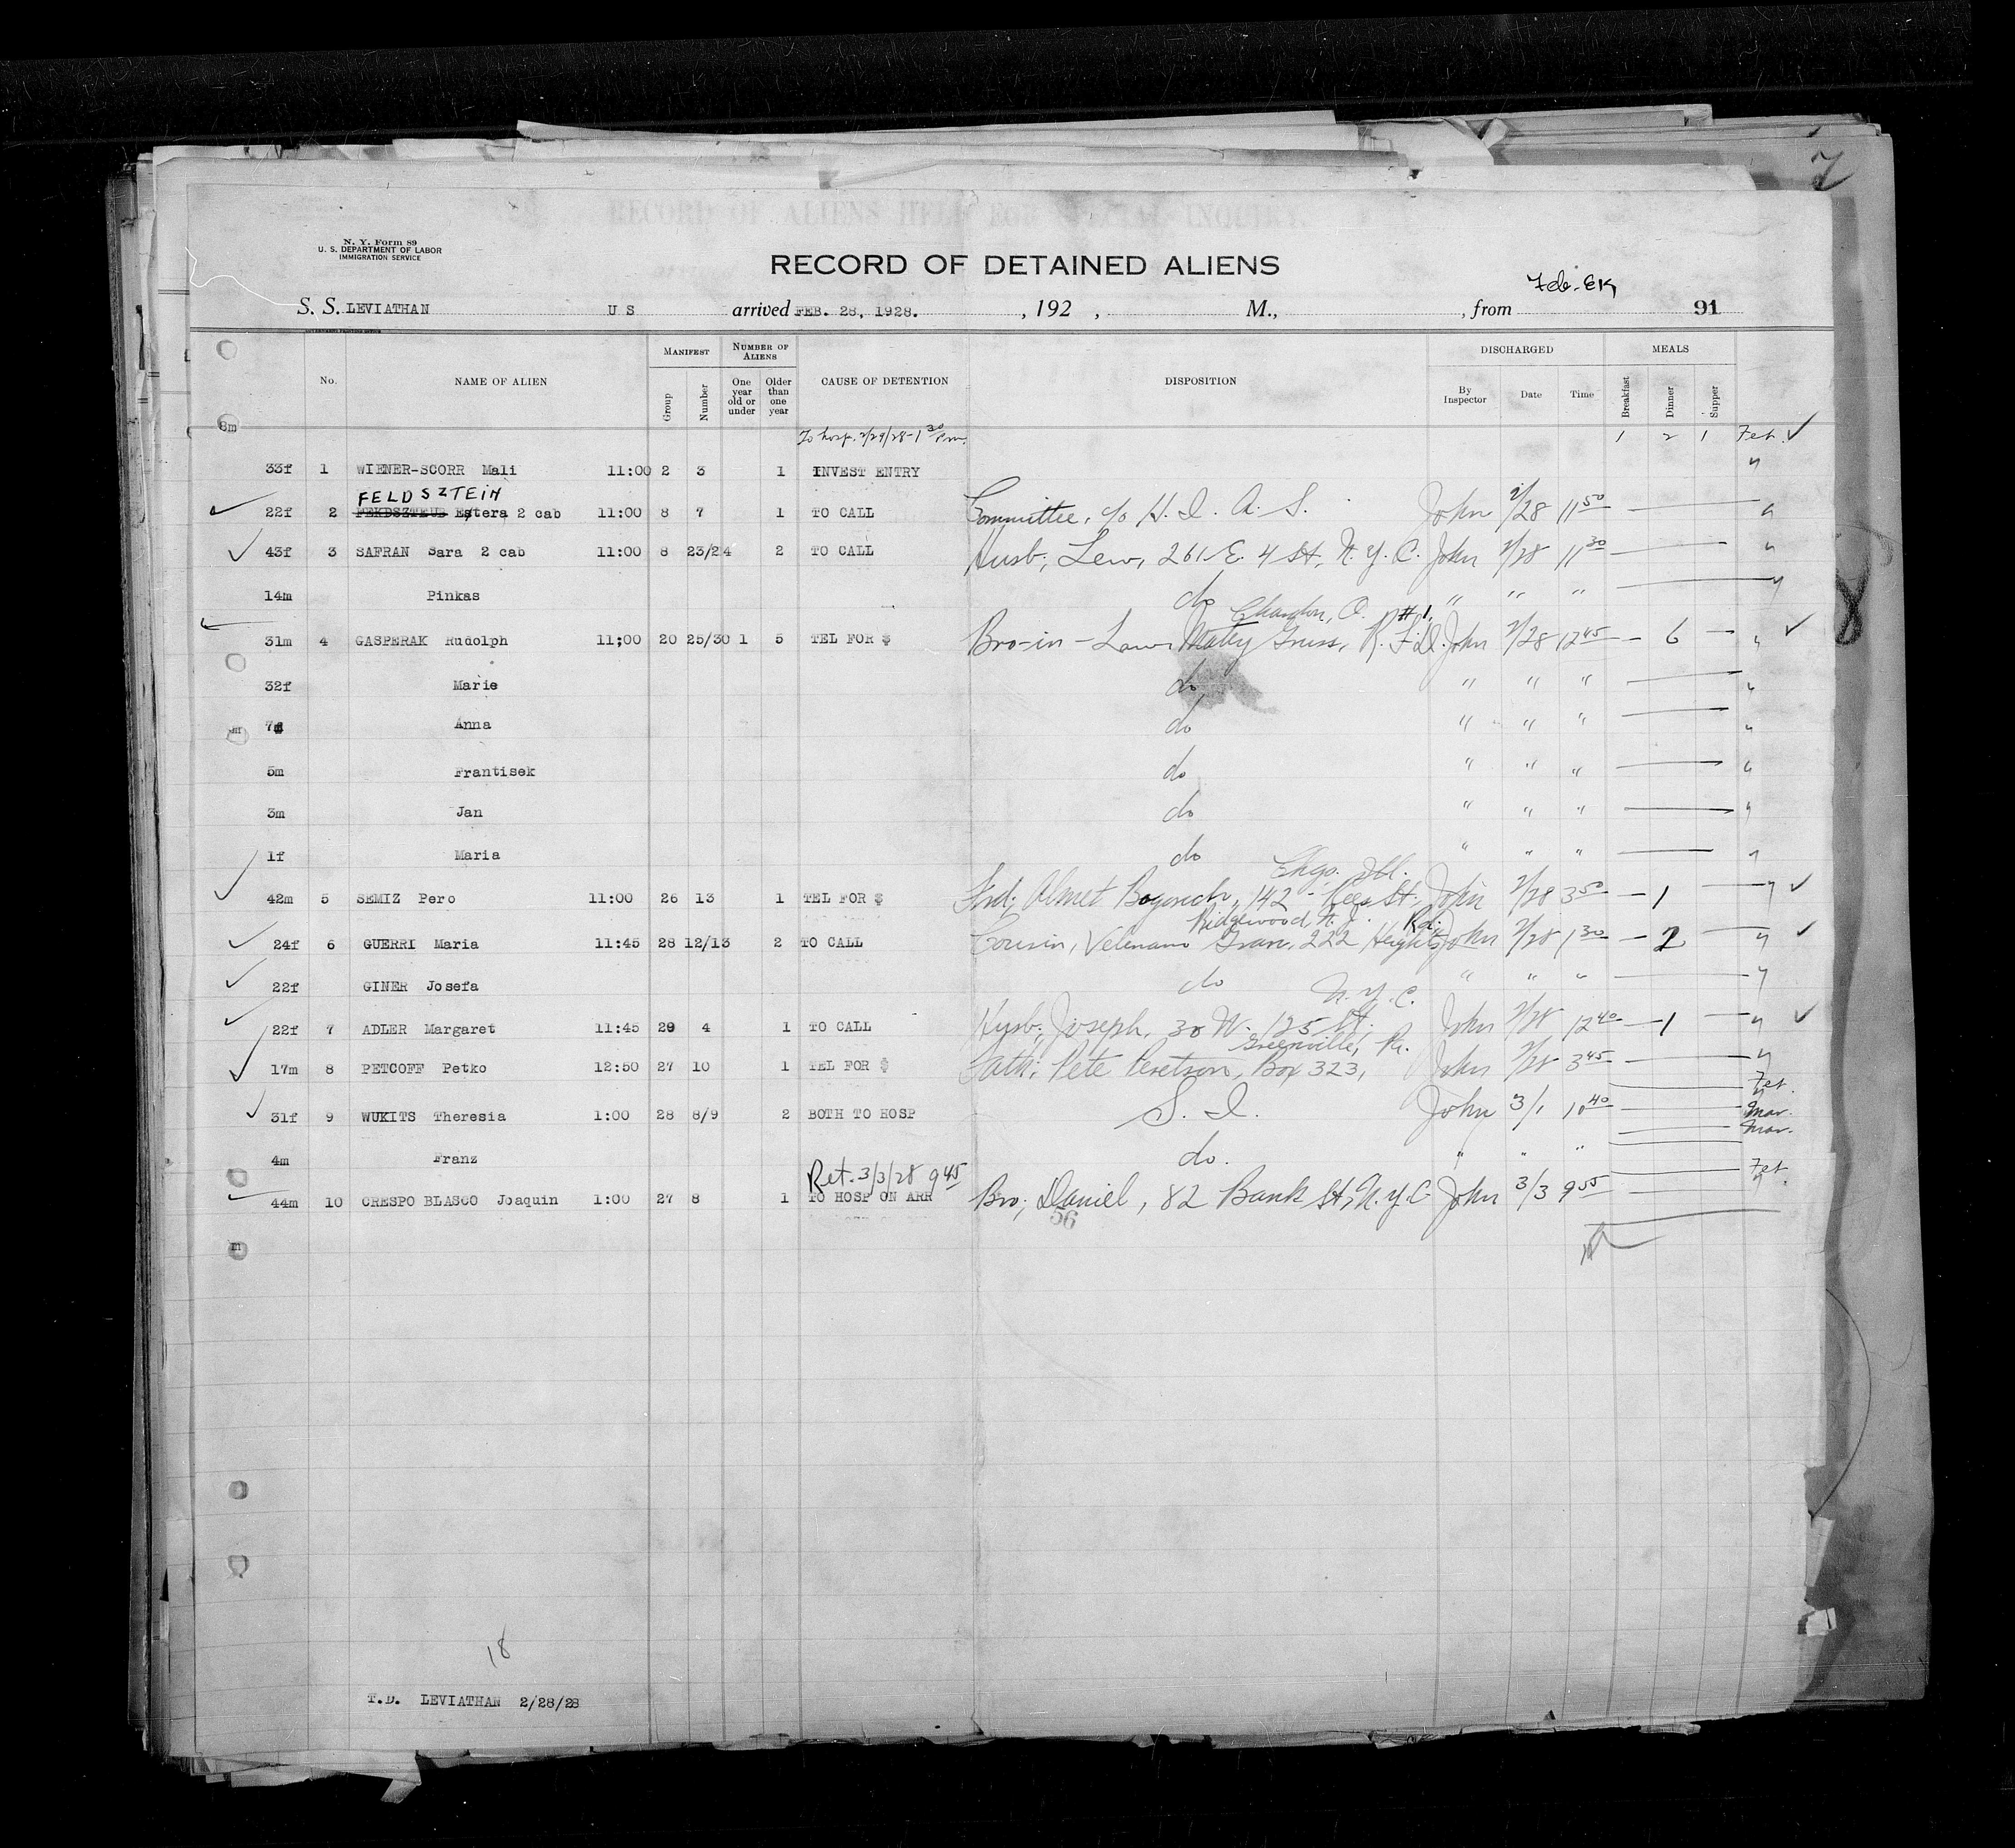 7
RECORD OF ALIENS HELD FOR SPECIAL INQUIRY.
N. Y. Form 89
U. S. DEPARTMENT OF LABOR
IMMIGRATION SERVICE
RECORD OF DETAINED ALIENS
Feb. EK
S. S. LEVIATHAN U S arrived FEB. 28, 1928. , 192 , M., , from 91
No. NAME OF ALIEN MANIFEST Group Number NUMBER OF ALIENS One year old or under Older than one year CAUSE OF DETENTION DISPOSITION DISCHARGED By Inspector Date Time MEALS Breakfast Dinner Supper
8m
To hosp. 2/29/28 - 1 30 P.m. 1 2 1 Feb. ✓
33f 1 WIENER-SCORR Mali 11:00 2 3 1 INVEST ENTRY "
FELDSZTEIN
✓ 22f 2 Estera 2 cab 11:00 8 7 1 TO CALL Committee, c/o H. I. A. S. John 2/28 11 50 — "
✓ 43f 3 SAFRAN Sara 2 cab 11:00 8 23/24 2 TO CALL Husb; Lew, 261 E. 4 St, N. Y. C. John 2/28 11 30 — "
14m Pinkas do " " " — "
Chardon, O. R#1,
31m 4 GASPERAK Rudolph 11;00 20 25/30 1 5 TEL FOR $ Bro-in-Law, R.F.D. John 2/28 12 45 — 6 — " ✓
32f Marie do " " " — "
7f Anna do " " " — "
5m Frantisek do " " " — "
3m Jan do " " " — "
1f Maria do " " " — "
Chgo. Ill.
✓ 42m 5 SEMIZ Pero 11:00 26 13 1 TEL FOR $ Frd; 142 St, John 2/28 3 50 — 1 — " ✓
Ridgewood N. J. Rd;
✓ 24f 6 GUERRI Maria 11:45 28 12/13 2 TO CALL Cousin, 222 Heights John 2/28 1 30 — 2 — " ✓
✓ 22f GINER Josefa do " " " — "
N. Y. C.
✓ 22f 7 ADLER Margaret 11:45 29 4 1 TO CALL Husb; Joseph, 30 W. 125 St. John 2/28 12 40 — 1 — " ✓
Greenville, Pa.
✓ 17m 8 PETCOFF Petko 12:50 27 10 1 TEL FOR $ Fath; Pete Box 323, John 2/28 3 45 — "
Feb.
✓ 31f 9 WUKITS Theresia 1:00 28 8/9 2 BOTH TO HOSP S. I. John 3/1 10 40 — Mar.
Mar.
4m Franz do. " " "
Ret. 3/3/28 9 45 Feb.
44m 10 CRESPO BLASCO Joaquin 1:00 27 8 1 TO HOSP ON ARR Bro; Daniel, 82 Bank St, N.Y.C John 3/3 9 55 — "
56
m
18
T.D. LEVIATHAN 2/28/28